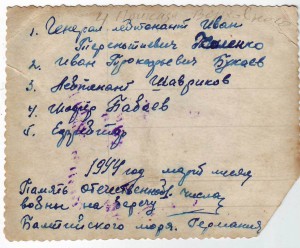 1. Генерал лейтенант Иван
Терентьевич Коленко
2. Иван Букаев
3. Лейтенант Шавриков
4. Шофер Бабаев
5. Ефрейтор
1944 год март месяц
Память отечественной числа
войны на берегу
Балтийского моря. Германия